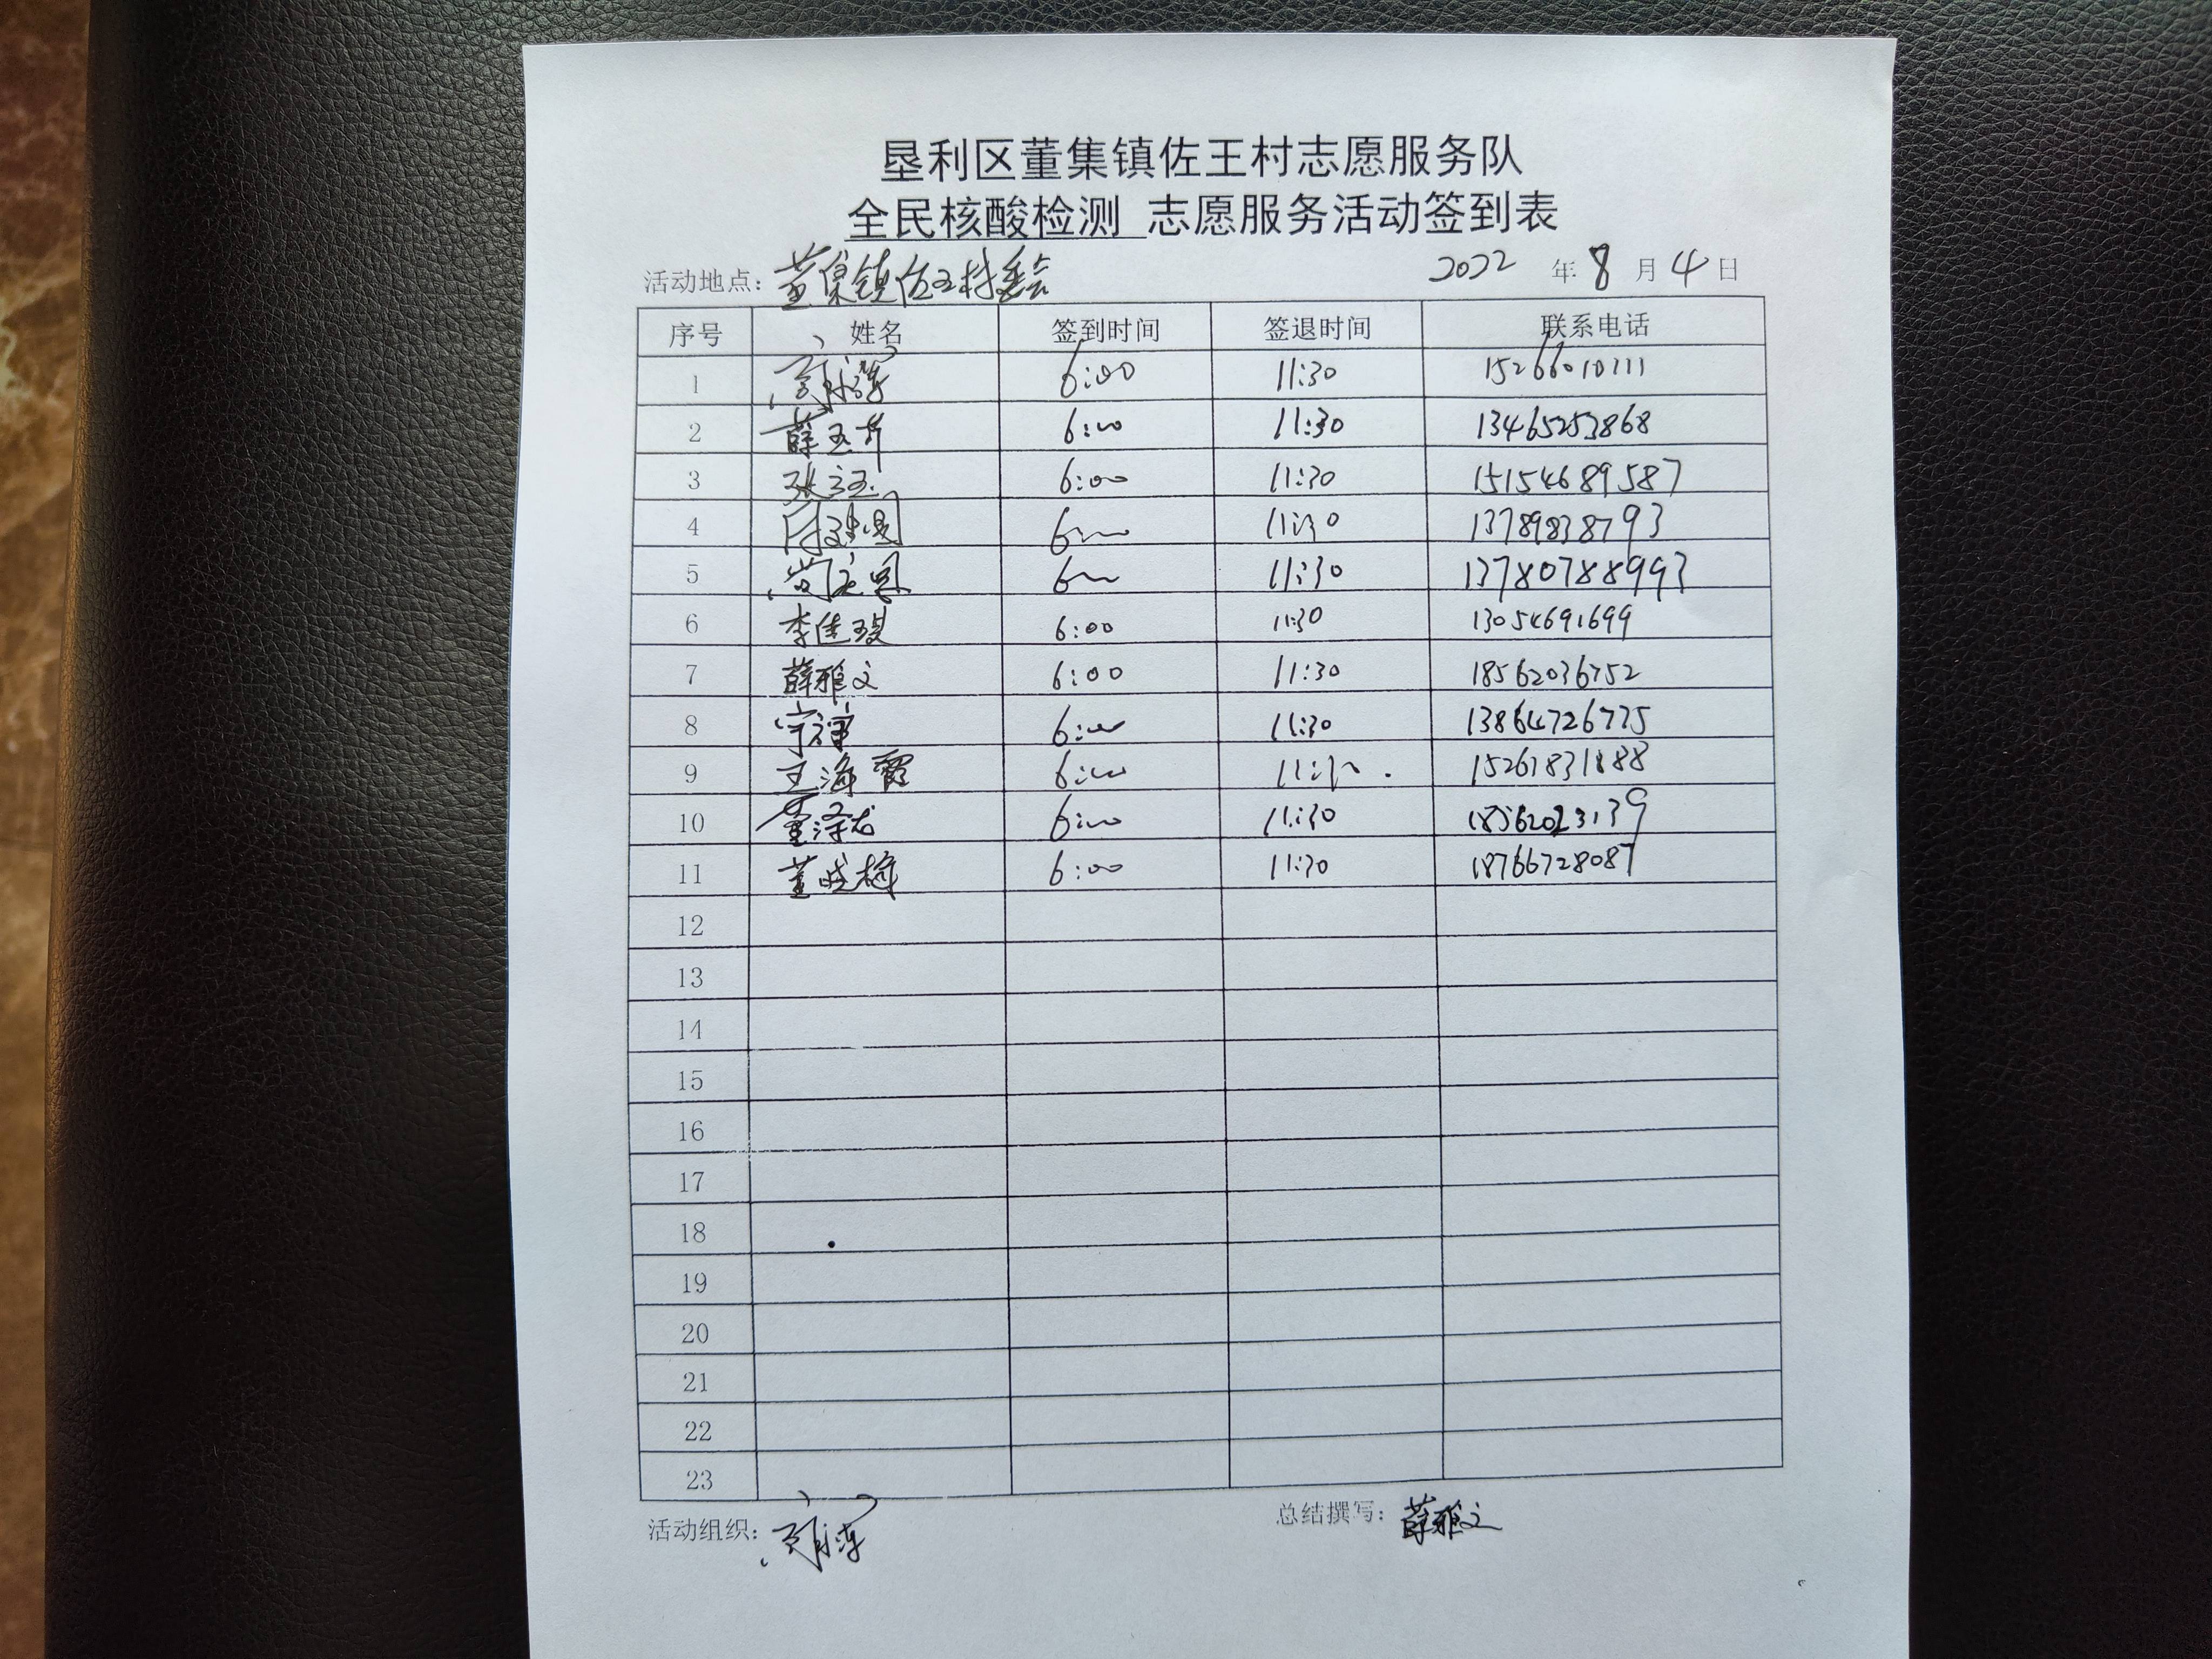 垦利区董集镇佐王村志愿服务队
全民核酸检测 志愿服务活动签到表
活动地点：董集镇佐王村委会 2022 年 8 月 4 日
序号 姓名 签到时间 签退时间 联系电话
1 6:00 11:30 15266010111
2 薛玉 6:00 11:30 13465253868
3 张 6:00 11:30 15154689587
4 6:00 11:30 13789838793
5 尚 6:00 11:30 13780788993
6 李佳 6:00 11:30 13054691699
7 薛雅文 6:00 11:30 18562036752
8 6:00 11:30 13864726775
9 王海霞 6:00 11:30 15261831888
10 董泽龙 6:00 11:30 18562023139
11 董晓梅 6:00 11:30 18766728087
12
13
14
15
16
17
18
19
20
21
22
23
活动组织： 总结撰写：薛雅文